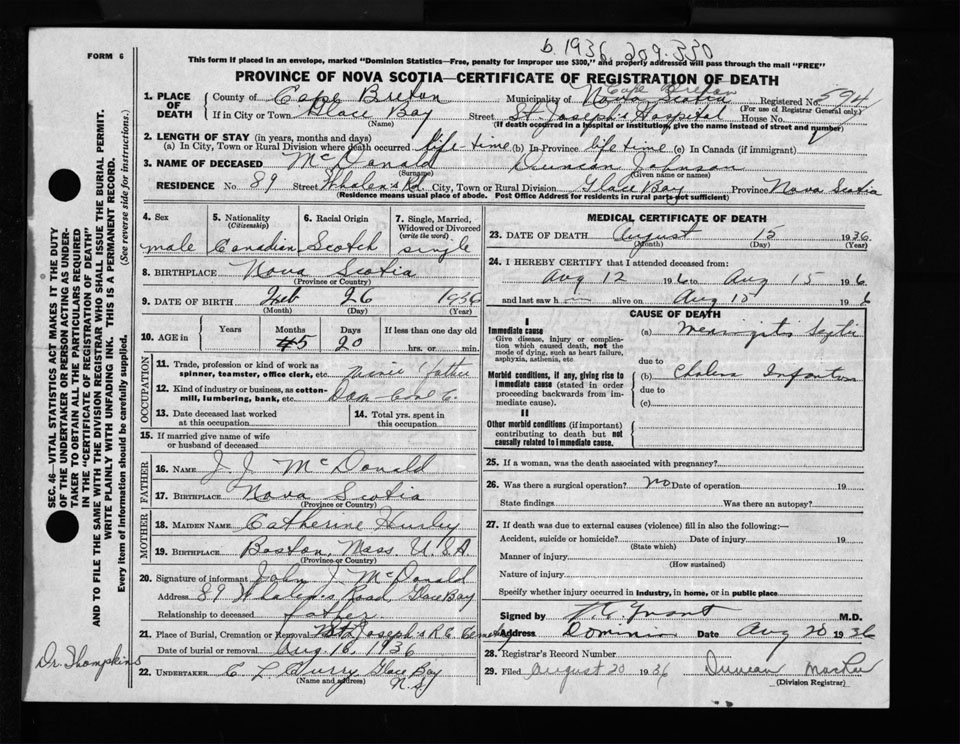 b. 1936 209-330
FORM 6
This form if placed in an envelope, marked "Dominion Statistics—Free, penalty for improper use $300," and properly addressed will pass through the mail "FREE"
PROVINCE OF NOVA SCOTIA—CERTIFICATE OF REGISTRATION OF DEATH
1. PLACE OF DEATH
County of Cape Breton Municipality of Nova Scotia Cape Breton Registered No.
(For use of Registrar General only.)
If in City or Town Glace Bay Street St. Joseph's Hospital House No.
(Name) (If death occurred in a hospital or institution, give the name instead of street and number)
2. LENGTH OF STAY (in years, months and days)
(a) In City, Town or Rural Division where death occurred life-time (b) In Province life time (c) In Canada (if immigrant)
3. NAME OF DECEASED McDonald Duncan Johnson
(Surname) (Given name or names)
RESIDENCE No. 89 Street Whalen's Rd. City, Town or Rural Division Glace Bay Province Nova Scotia
(Residence means usual place of abode. Post Office Address for residents in rural parts not sufficient)
4. Sex
male
5. Nationality
(Citizenship)
Canadian
6. Racial Origin
Scotch
7. Single, Married, Widowed or Divorced
(write the word)
single
8. BIRTHPLACE Nova Scotia
(Province or Country)
9. DATE OF BIRTH Feb 26 1936
(Month) (Day) (Year)
10. AGE in
Years Months Days If less than one day old
5 20 hrs. or min.
OCCUPATION
11. Trade, profession or kind of work as spinner, teamster, office clerk, etc. father
12. Kind of industry or business, as cotton-mill, lumbering, bank, etc. Dom Coal C.
13. Date deceased last worked at this occupation
14. Total yrs. spent in this occupation
15. If married give name of wife or husband of deceased
FATHER
16. NAME J. J. McDonald
17. BIRTHPLACE Nova Scotia
(Province or Country)
MOTHER
18. MAIDEN NAME Catherine Hurley
19. BIRTHPLACE Boston, Mass. U.S.A.
(Province or Country)
20. Signature of informant John J. McDonald
Address 89 Whalen's Road, Glace Bay
Relationship to deceased father.
21. Place of Burial, Cremation or Removal St Joseph's R.C. Cemetery
Date of burial or removal Aug. 16, 1936
22. UNDERTAKER C L Curry Glace Bay
(Name and address) N.S.
MEDICAL CERTIFICATE OF DEATH
23. DATE OF DEATH August 15 1936
(Month) (Day) (Year)
24. I HEREBY CERTIFY that I attended deceased from:
Aug 12 1936 to Aug 15 1936
and last saw him alive on Aug 15 1936
CAUSE OF DEATH
I
Immediate cause
Give disease, injury or complication which caused death, not the mode of dying, such as heart failure, asphyxia, asthenia, etc
(a) Meningitis Septic
due to
Morbid conditions, if any, giving rise to immediate cause (stated in order proceeding backwards from immediate cause).
(b) Cholera Infantum
due to
(c)
II
Other morbid conditions (if important) contributing to death but not causally related to immediate cause.
25. If a woman, was the death associated with pregnancy?
26. Was there a surgical operation? no Date of operation 19
State findings Was there an autopsy?
27. If death was due to external causes (violence) fill in also the following:—
Accident, suicide or homicide? Date of injury 19
(State which)
Manner of injury
(How sustained)
Nature of injury
Specify whether injury occurred in Industry, in home, or in public place
Signed by Grant M.D.
Address Dominion Date Aug 20 1936
28. Registrar's Record Number
29. Filed August 20 1936 Duncan
(Division Registrar)
SEC. 46—VITAL STATISTICS ACT MAKES IT THE DUTY
OF THE UNDERTAKER OR PERSON ACTING AS UNDER-
TAKER TO OBTAIN ALL THE PARTICULARS REQUIRED
IN THE "CERTIFICATE OF REGISTRATION OF DEATH"
AND TO FILE THE SAME WITH THE DIVISION REGISTRAR WHO SHALL ISSUE THE BURIAL PERMIT.
WRITE PLAINLY WITH UNFADING INK. THIS IS A PERMANENT RECORD.
Every item of information should be carefully supplied. (See reverse side for instructions.)
Dr. Thompkins